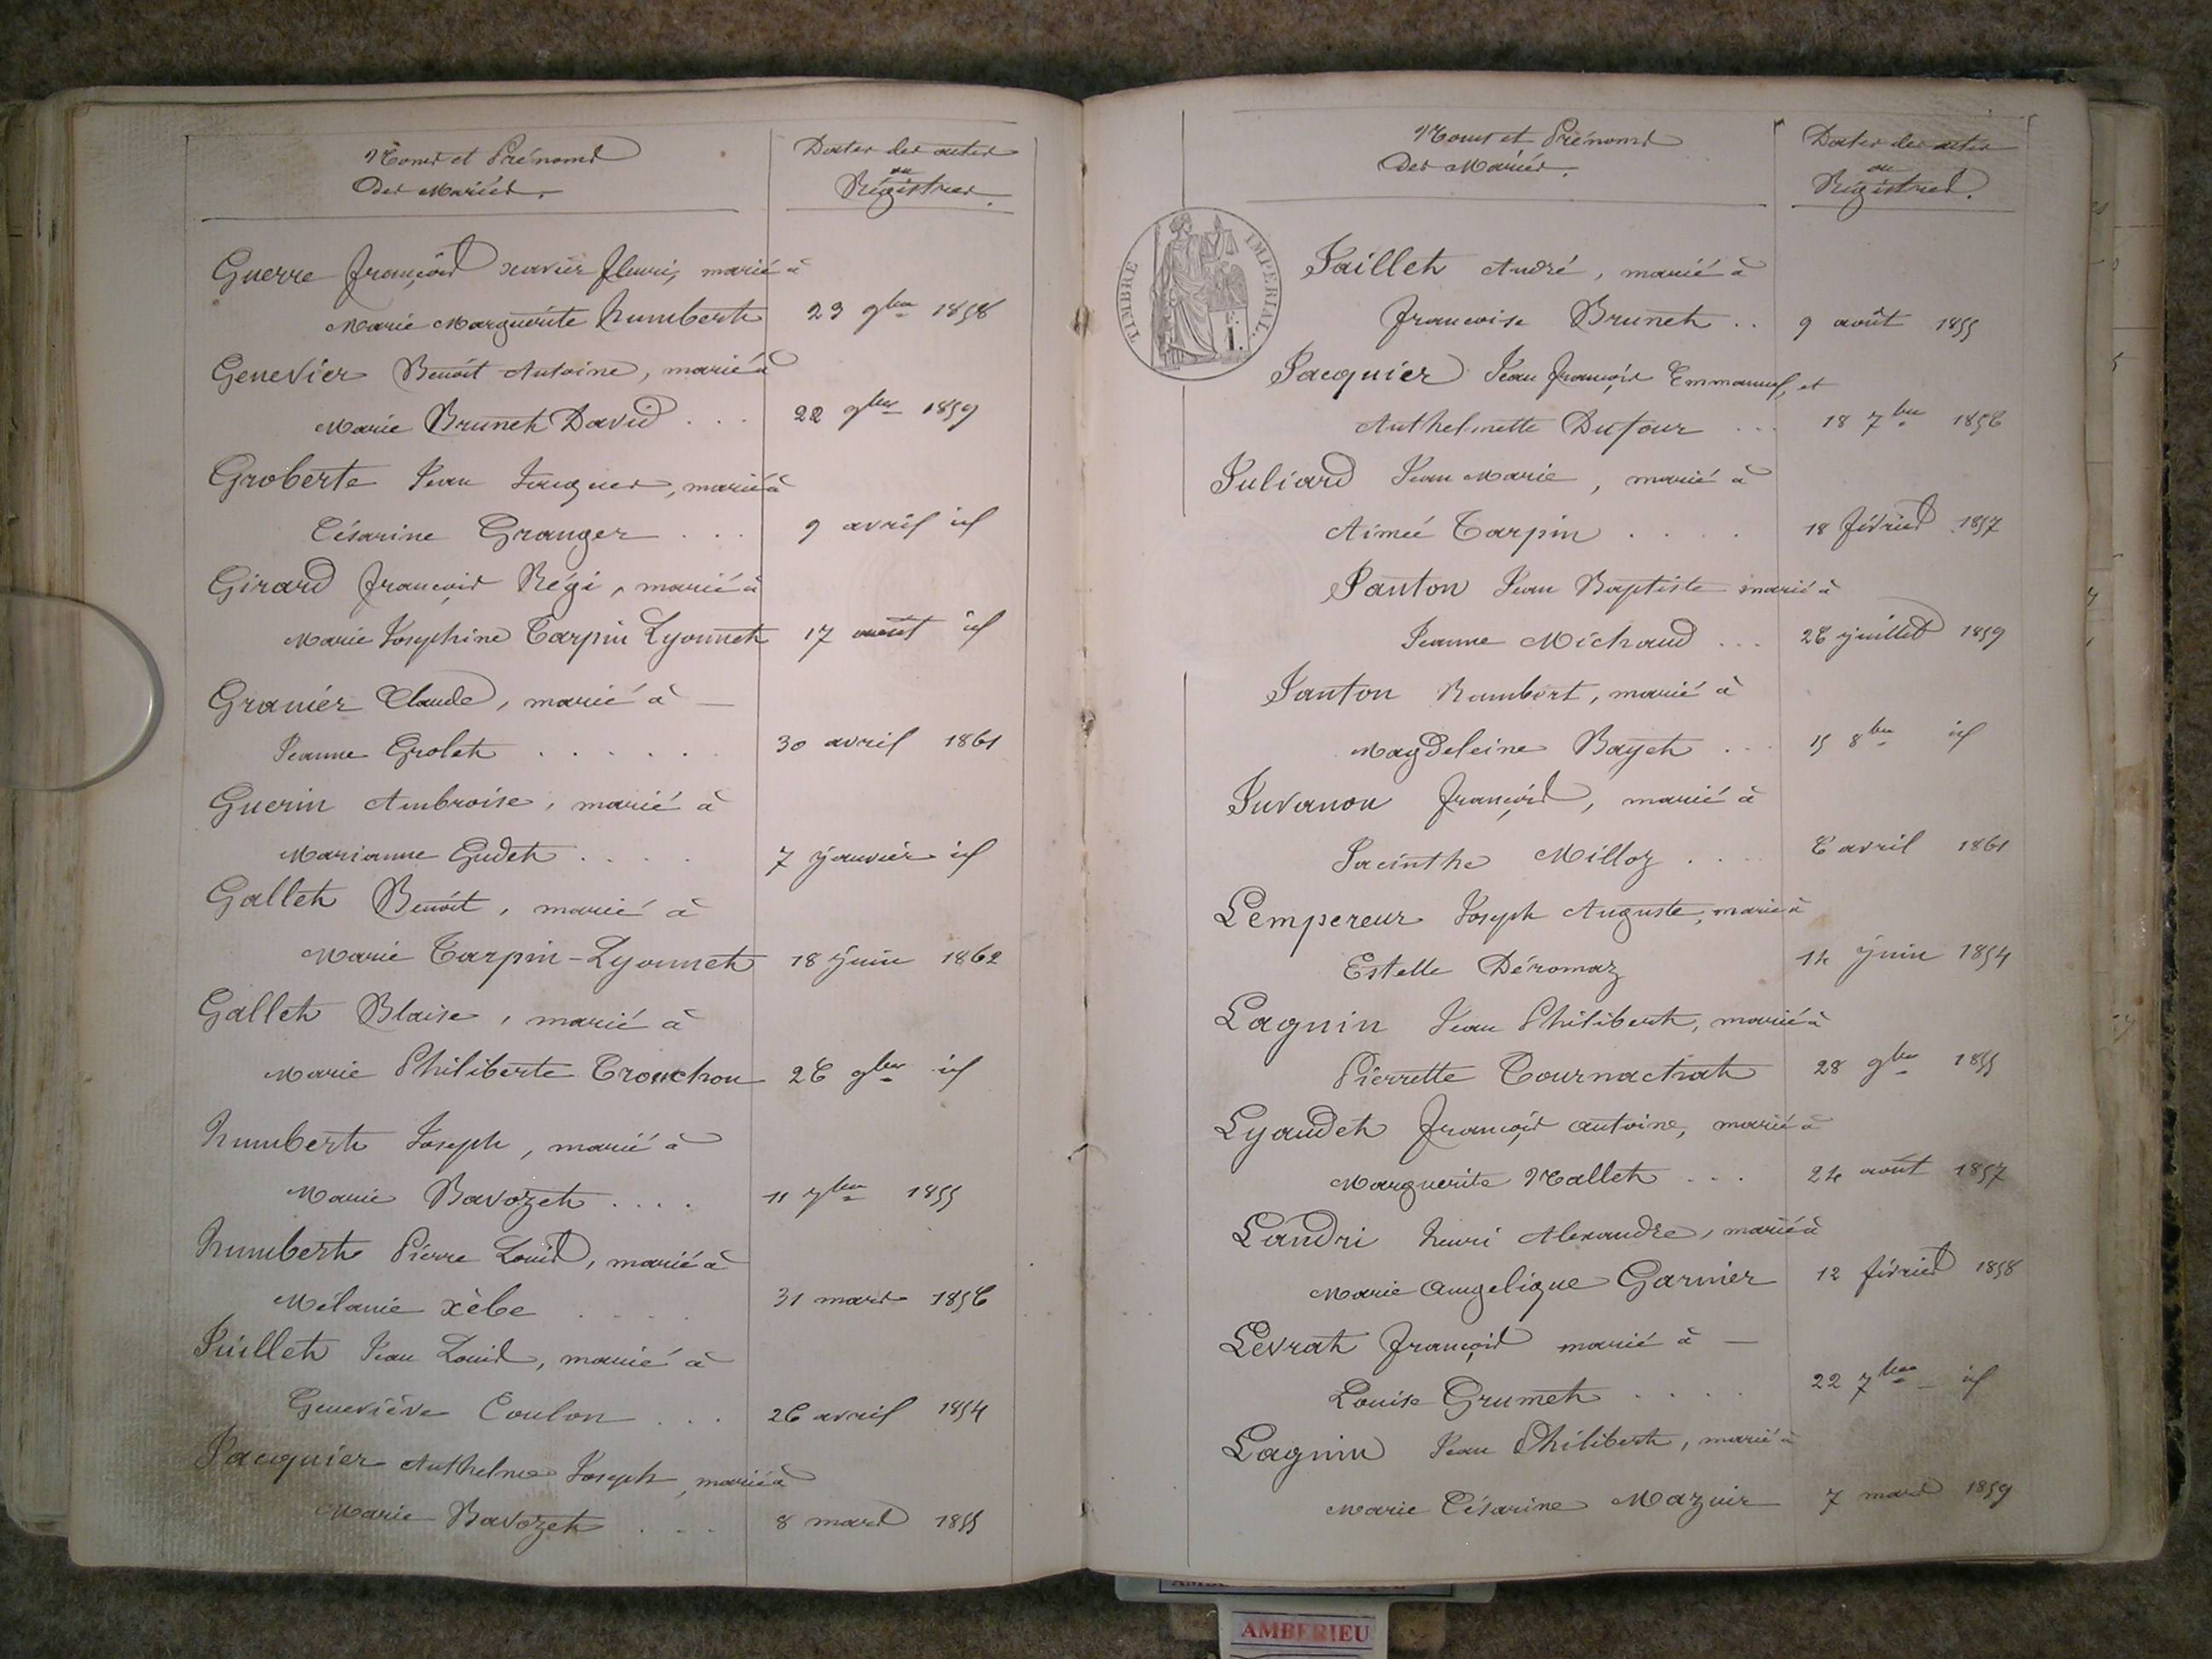 Noms et Prénoms
Des Mariés.
Dates des actes
ou
Régistres.
Guerre françois xavier fleuri, marié à
Marie Marguerite humbert 23 9bre 1858
Genevier Benoit Antoine, marié à
Marie Brunet David . . . 22 9bre 1859
Groberte Jean Jacques, marié à
Césarine Granger . . . 9 avril id
Girard françois Régi, marié à
Marie Josephine Tarpin Lyonnet 17 août id
Granier Claude, marié à —
Jeanne Grolet . . . . . . 30 avril 1861
Guerin Ambroise, marié à
Marianne Gudet . . . . 7 janvier id
Gallet Benoit, marié à
Marie Tarpin-Lyonnet 18 juin 1862
Gallet Blaise, marié à
Marie Philiberte Tronchon 26 9bre id
humbert Joseph, marié à
Marie Bavozet . . . . 11 7bre 1855
humbert Pierre Louis, marié à
Mélanie xèbe . . . . 31 mars 1856
Juillet Jean Louis, marié à
Geneviève Coulon . . . 26 avril 1854
Jacquier Anthelme Joseph, marié à
Marie Bavozet . . . 8 mars 1855
Noms et Prénoms
Des Mariés.
Dates des actes
ou
Régistres.
TIMBRE IMPERIAL.
Jaillet André, marié à
francoise Brunet . . 9 août 1855
Jacquier Jean françois Emmanuel, et
Anthelmette Dufour . . . 18 7bre 1856
Juliard Jean Marie, marié à
Aimée Tarpin . . . . 18 février 1857
Janton Jean Baptiste marié à
Jeanne Michaud . . . 26 juillet 1859
Janton Rambert, marié à
Magdeleine Bayet . . . 15 8bre id
Juvanon françois, marié à
Jacinthe Milloz . . . . 6 avril 1861
Lempereur Joseph Auguste, marié à
Estelle Déromaz 14 juin 1854
Lagnin Jean Philibert, marié à
Pierrette Tournachat 28 9bre 1855
Lyaudet françois antoine, marié à
Marguerite Nallet . . . 24 août 1857
Landri henri Alexandre, marié à
Marie angelique Garnier 12 février 1858
Levrat françois marié à —
Louise Grumet . . . . 22 7bre id
Lagnin Jean Philibert, marié à
Marie Césarine Mazuir 7 mars 1859
AMBERIEU